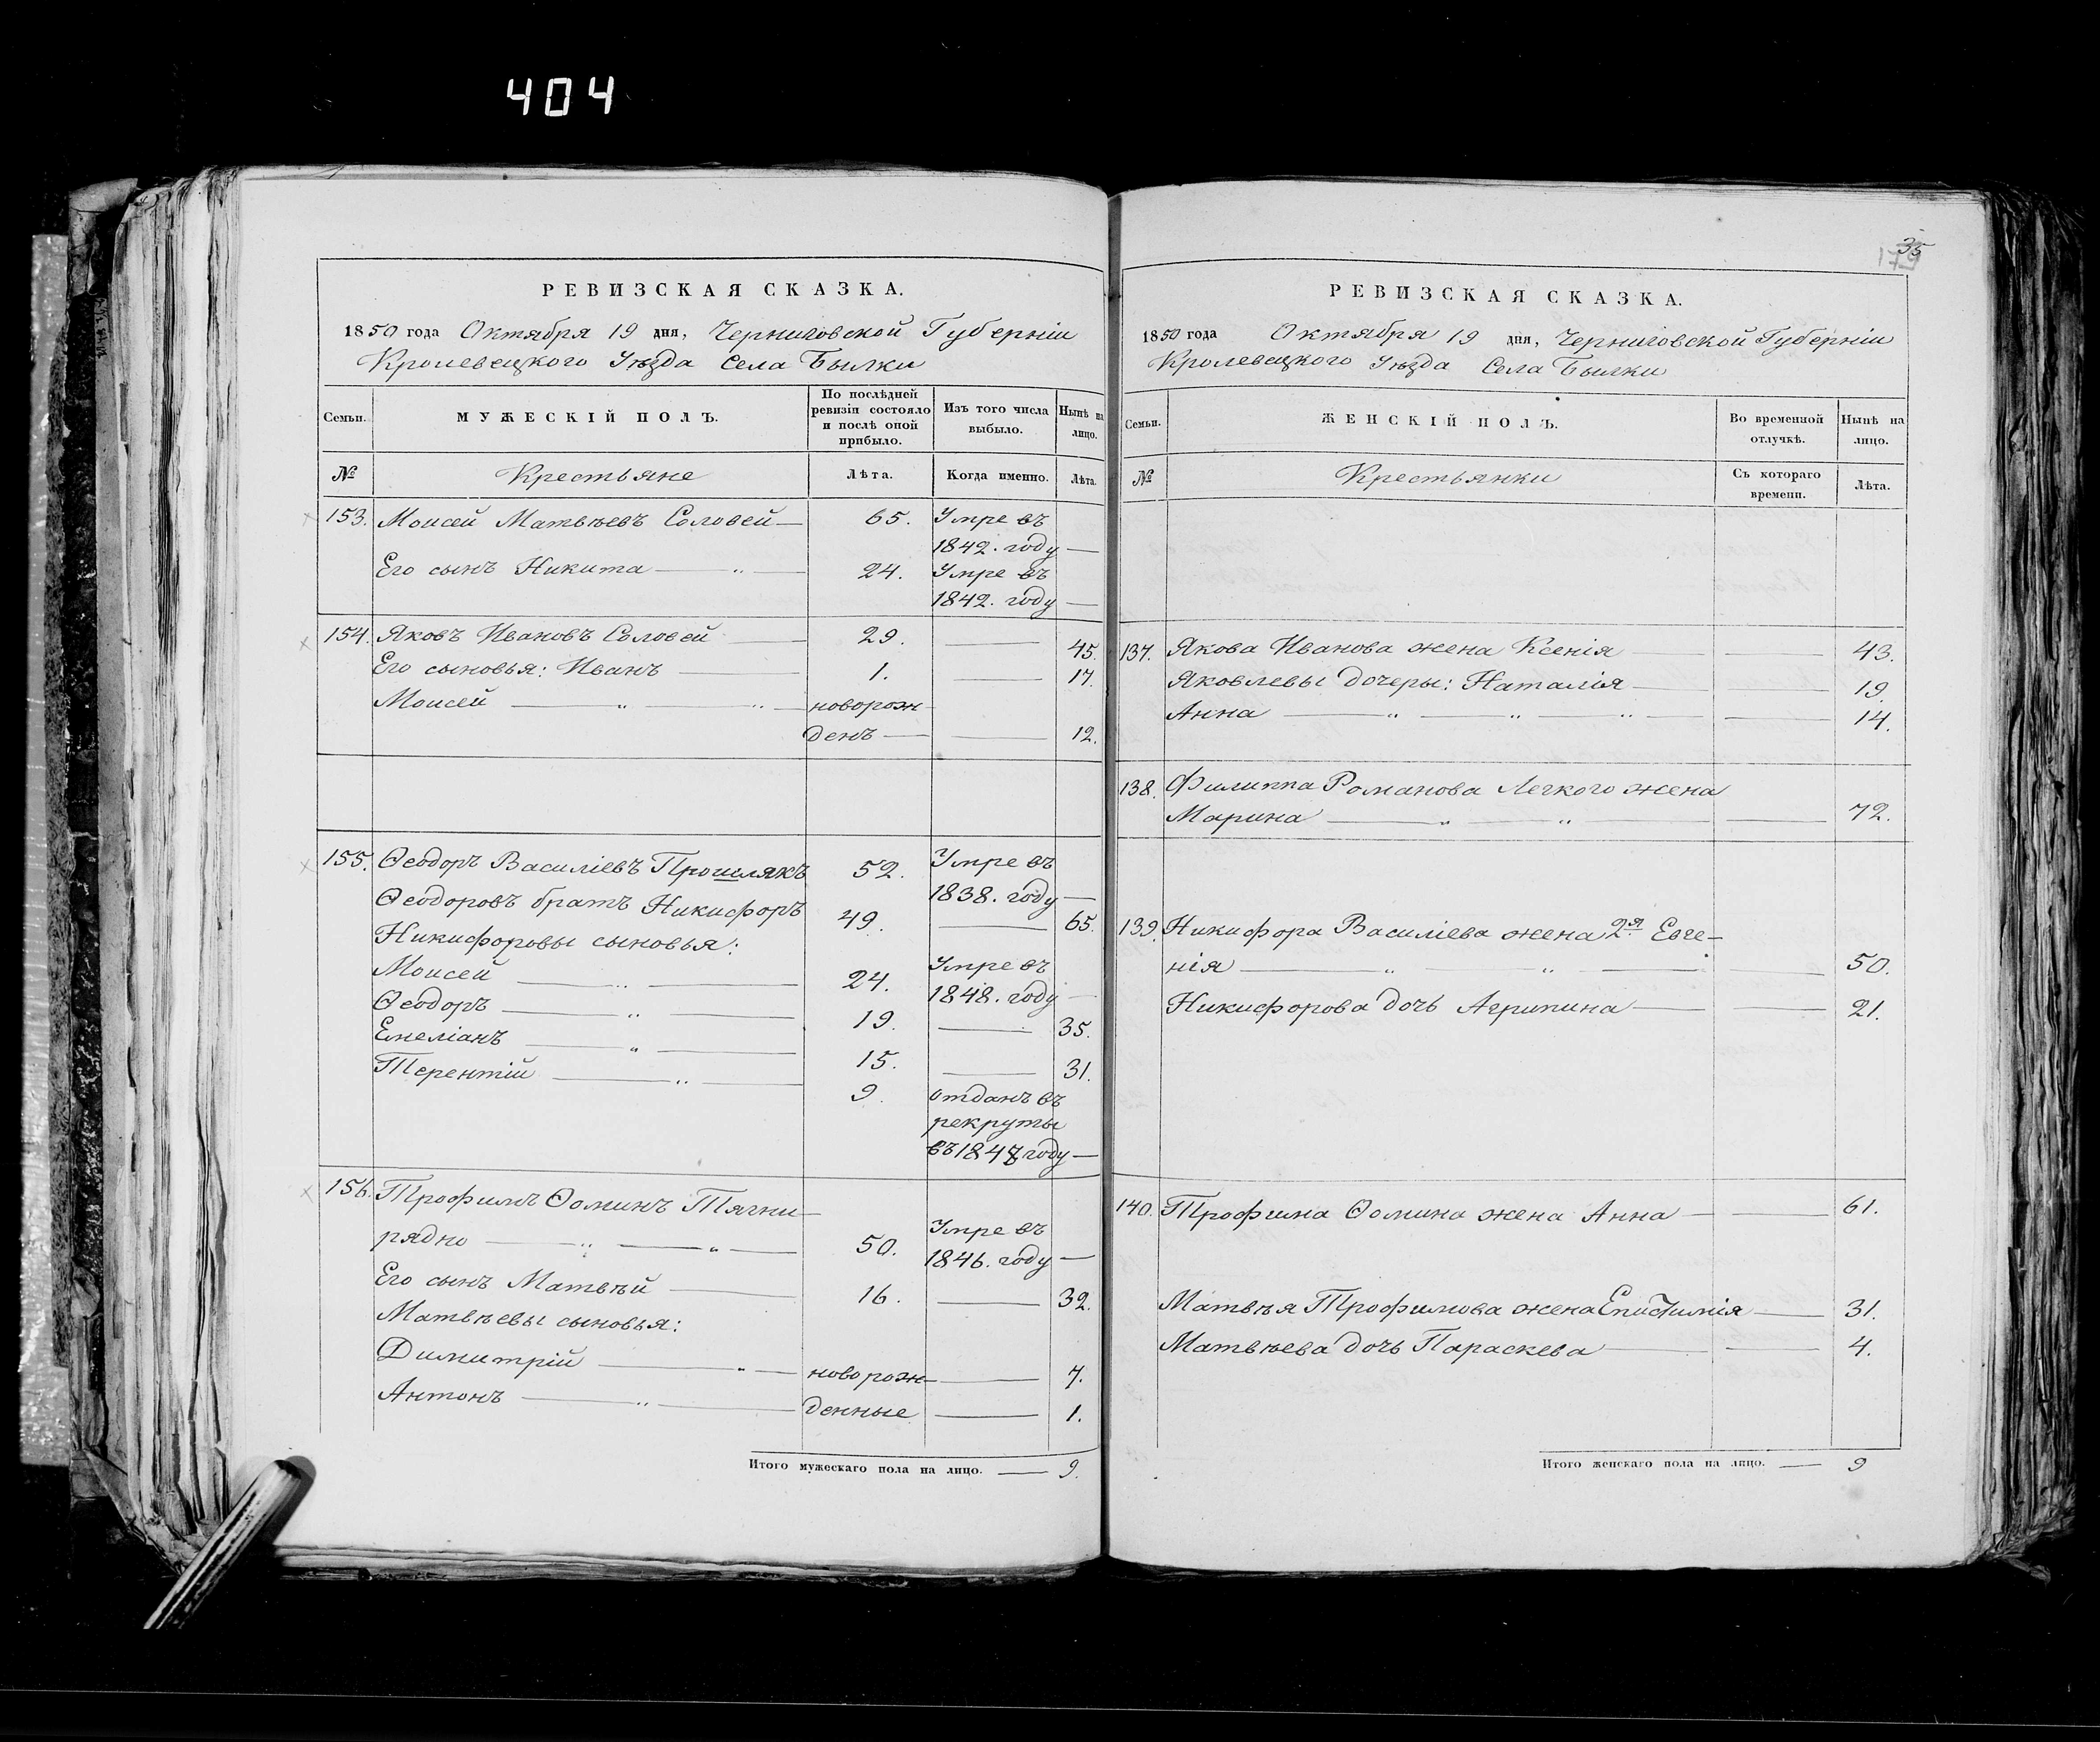 404
РЕВИЗСКАЯ СКАЗКА.
1850 года Октября 19 дня, Черниговской Губерніи
Кролевецкого Уѣзда Села Былки
Семьи.
МУЖЕСКІЙ ПОЛЪ.
По послѣдней
ревизіи состояло
и послѣ оной
прибыло.
Изъ того числа
выбыло.
Нынѣ на
лицо.
№
Крестьяне
Лѣта.
Когда именно.
Лѣта.
153. Моисей Матвѣевъ Соловей — 65. Умре въ
1842. году —
Его сынъ Никита — „ — 24. Умре въ
1842. году —
154. Яковъ Ивановъ Соловей — 29. — 45.
Его сыновья: Иванъ — 1. — 17.
Моисей — „ — „ — новорож
денъ — — 12.
155. Ѳеодоръ Василіевъ Прошлякъ 52. Умре въ
1838. году —
Ѳеодоровъ братъ Никифоръ 49. — 65.
Никифоровы сыновья:
Моисей — „ — 24. Умре въ
1848. году —
Ѳеодоръ — „ — 19. — 35.
Емеліанъ — „ — 15. — 31.
Терентій — „ — 9. отданъ въ
рекруты
въ 1847 году —
156. Трофимъ Ѳоминъ Тягни-
рядно — „ — „ — 50. Умре въ
1846. году —
Его сынъ Матвѣй — 16. — 32.
Матвѣевы сыновья:
Димитрій — „ — новорож- — 7.
Антонъ — „ — денные — 1.
Итого мужескаго пола на лицо. — 9.
35
179
РЕВИЗСКАЯ СКАЗКА.
1850 года Октября 19 дня, Черниговской Губерніи
Кролевецкого Уѣзда Села Былки
Семьи.
ЖЕНСКІЙ ПОЛЪ.
Во временной
отлучкѣ.
Нынѣ на
лицо.
№
Крестьянки
Съ котораго
времени.
Лѣта.
137. Якова Иванова жена Ксенія — — 43.
Яковлевы дочеры: Наталія — — 19.
Анна — „ — „ — „ — — 14.
138. Филиппа Романова Легкого жена
Марина — „ — „ — — 72.
139. Никифора Василіева жена 2я Евге-
нія — „ — „ — — 50.
Никифорова дочь Агрипина — — 21.
140. Трофима Ѳомина жена Анна — — 61.
Матвѣя Трофимова жена Епистимія — 31.
Матвѣева дочь Параскева — — 4.
Итого женскаго пола на лицо. — 9